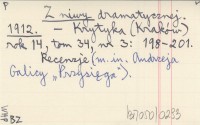 P
P
Z niwy dramatycznej.
1912. - Krytyka (Kraków)
rok 14, tom 34, nr 3: 198-201.
Recenzje (m.in. Andrzeja
Galicy „Przysięga").
WHP
BZ